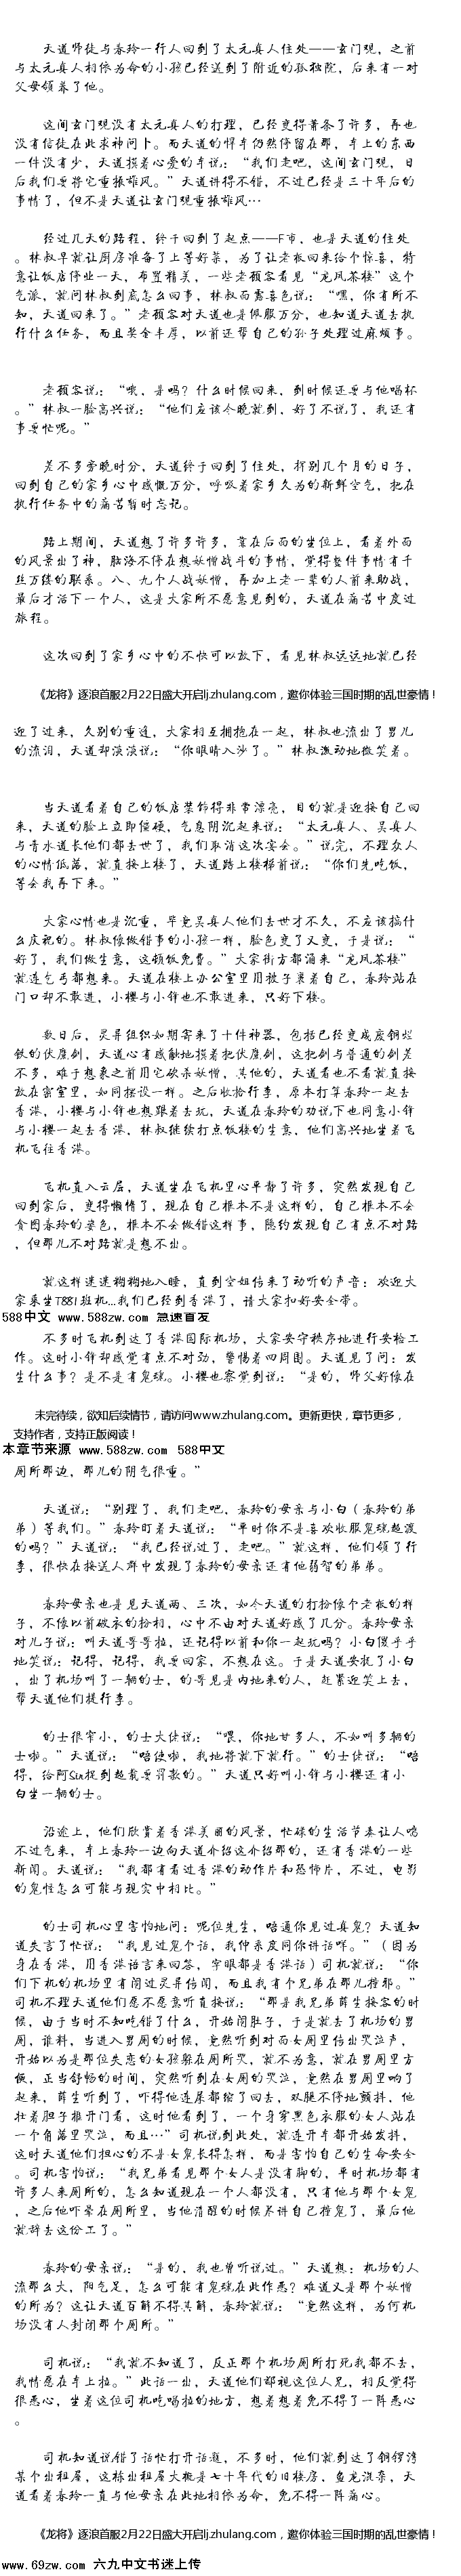 天道师徒与春玲一行人回到了太元真人住处——玄门观，之前
与太元真人相依为命的小孩已经送到了附近的孤独院，后来有一对
父母领养了他。
这间玄门观没有太元真人的打理，已经变得萧条了许多，再也
没有信徒在此求神问卜。而天道的悍车仍然停留在那，车上的东西
一件没有少，天道摸着心爱的车说：“我们走吧，这间玄门观，日
后我们要将它重振雄风。”天道讲得不错，不过已经是三十年后的
事情了，但不是天道让玄门观重振雄风…
经过几天的路程，终于回到了起点——F市，也是天道的住处
。林叔早就让厨房准备了上等好菜，为了让老板回来给个惊喜，特
意让饭店停业一天，布置精美，一些老顾客看见“龙凤茶楼”这个
气派，就问林叔到底怎么回事，林叔面露喜色说：“嘿，你有所不
知，天道回来了。”老顾客对天道也是佩服万分，也知道天道去执
行什么任务，而且奖金丰厚，以前还帮自己的孙子处理过麻烦事。
老顾客说：“哦，是吗？什么时候回来，到时候还要与他喝杯
。”林叔一脸高兴说：“他们应该今晚就到，好了不说了，我还有
事要忙呢。”
差不多傍晚时分，天道终于回到了住处，挥别几个月的日子，
回到自己的家乡心中感慨万分，呼吸着家乡久为的新鲜空气，把在
执行任务中的痛苦暂时忘记。
路上期间，天道想了许多许多，靠在后面的坐位上，看着外面
的风景出了神，脑海不停在想妖憎战斗的事情，觉得整件事情有千
丝万缕的联系。八、九个人战妖憎，再加上老一辈的人前来助战，
最后才活下一个人，这是大家所不愿意见到的，天道在痛苦中度过
旅程。
这次回到了家乡心中的不快可以放下，看见林叔远远地就已经
《龙将》逐浪首服2月22日盛大开启lj.zhulang.com，邀你体验三国时期的乱世豪情！
迎了过来，久别的重逢，大家相互拥抱在一起，林叔也流出了男儿
的流泪，天道却淡淡说：“你眼睛入沙了。”林叔激动地微笑着。
当天道看着自己的饭店装饰得非常漂亮，目的就是迎接自己回
来，天道的脸上立即僵硬，气息阴沉起来说：“太元真人、吴真人
与青水道长他们都去世了，我们取消这次宴会。”说完，不理众人
的心情低落，就直接上楼了，天道踏上楼梯前说：“你们先吃饭，
等会我再下来。”
大家心情也是沉重，毕竟吴真人他们去世才不久，不应该搞什
么庆祝的。林叔像做错事的小孩一样，脸色变了又变，于是说：“
好了，我们做生意，这顿饭免费。”大家街方都涌来“龙凤茶楼”
就连乞丐都想来。天道在楼上办公室里用被子裹着自己，春玲站在
门口却不敢进，小樱与小锋也不敢进来，只好下楼。
数日后，灵异组织如期寄来了十件神器，包括已经变成废铜烂
铁的伏魔剑，天道心有感触地摸着把伏魔剑，这把剑与普通的剑差
不多，难于想象之前用它砍杀妖憎，其他的，天道看也不看就直接
放在密室里，如同摆设一样。之后收拾行李，原本打算春玲一起去
香港，小樱与小锋也想跟着去玩，天道在春玲的劝说下也同意小锋
与小樱一起去香港，林叔继续打点饭楼的生意，他们高兴地坐着飞
机飞往香港。
飞机直入云层，天道坐在飞机里心平静了许多，突然发现自己
回到家后，变得懒惰了，现在自己根本不是这样的，自己根本不会
贪图春玲的姿色，根本不会做错这样事，隐约发现自己有点不对路
，但那儿不对路就是想不出。
就这样迷迷糊糊地入睡，直到空姐传来了动听的声音：欢迎大
家乘坐T881班机...我们已经到香港了，请大家扣好安全带。
588中文 www.588zw.com 急速首发
不多时飞机到达了香港国际机场，大家安守秩序地进行安检工
作。这时小锋却感觉有点不对劲，警惕着四周围。天道见了问：发
生什么事？是不是有鬼魂。小樱也察觉到说：“是的，师父好像在
未完待续，欲知后续情节，请访问www.zhulang.com。更新更快，章节更多，
支持作者，支持正版阅读！
本章节来源 www.588zw.com 588中文
厕所那边，那儿的阴气很重。”
天道说：“别理了，我们走吧，春玲的母亲与小白（春玲的弟
弟）等我们。”春玲盯着天道说：“平时你不是喜欢收服鬼魂超渡
的吗？”天道说：“我已经说过了，走吧。”就这样，他们领了行
李，很快在接送人群中发现了春玲的母亲还有他弱智的弟弟。
春玲母亲也是见天道两、三次，如今天道的打扮像个老板的样
子，不像以前破衣的扮相，心中不由对天道好感了几分。春玲母亲
对儿子说：叫天道哥哥拉，还记得以前和你一起玩吗？小白傻乎乎
地笑说：记得，记得，我要回家，不想在这。于是天道安抚了小白
，出了机场叫了一辆的士，的哥见是内地来的人，赶紧迎笑上去，
帮天道他们提行李。
的士很窄小，的士大佬说：“喂，你地甘多人，不如叫多辆的
士啦。”天道说：“唔使啦，我地将就下就行。”的士佬说：“唔
得，给阿Sir捉到超载要罚款的。”天道只好叫小锋与小樱还有小
白坐一辆的士。
沿途上，他们欣赏着香港美丽的风景，忙碌的生活节奏让人喘
不过气来，车上春玲一边向天道介绍这介绍那的，还有香港的一些
新闻。天道说：“我都有看过香港的动作片和恐怖片，不过，电影
的鬼怪怎么可能与现实中相比。”
的士司机心里害怕地问：呢位先生，唔通你见过真鬼？天道知
道失言了忙说：“我见过鬼个话，我仲系度同你讲话咩。”（因为
身在香港，用香港语言来回答，字眼都是香港话）司机就说：“你
们下机的机场里有闹过灵异传闻，而且我有个兄弟在那儿撞邪。”
司机不理天道他们愿不愿意听直接说：“那是我兄弟薛生接客的时
候，由于当时不知吃错了什么，开始闹肚子，于是就去了机场的男
厕，谁料，当进入男厕的时候，竟然听到对面女厕里传出哭泣声，
开始以为是那位失恋的女孩躲在厕所哭，就不为意，就在男厕里方
便，正当舒畅的时间，突然听到在女厕的哭泣，竟然在男厕里响了
起来，薛生听到了，吓得他连尿都缩了回去，双腿不停地颤抖，他
壮着胆子推开门看，这时他看到了，一个身穿黑色衣服的女人站在
一个角落里哭泣，而且…”司机说到此处，就连开车都开始发抖，
这时天道他们担心的不是女鬼长得怎样，而是害怕自己的生命安全
。司机害怕说：“我兄弟看见那个女人是没有脚的，平时机场都有
许多人来厕所的，怎么知道现在一个人都没有，只有他与那个女鬼
，之后他吓晕在厕所里，当他清醒的时候系讲自己撞鬼了，最后他
就辞去这份工了。”
春玲的母亲说：“是的，我也曾听说过。”天道想：机场的人
流那么大，阳气足，怎么可能有鬼魂在此作恶？难道又是那个妖憎
的所为？这让天道百解不得其解，春玲就说：“竟然这样，为何机
场没有人封闭那个厕所。”
司机说：“我就不知道了，反正那个机场厕所打死我都不去，
我情愿在车上拉。”此话一出，天道他们鄙视这位人兄，相反觉得
很恶心，坐着这位司机吃喝拉的地方，想着想着免不得了一阵恶心
。
司机知道说错了话忙打开话题，不多时，他们就到达了铜锣湾
某个出租屋，这栋出租屋大概是七十年代的旧楼房，鱼龙混杂，天
道看着春玲一直与他母亲在此地相依为命，免不得一阵痛心。
《龙将》逐浪首服2月22日盛大开启lj.zhulang.com，邀你体验三国时期的乱世豪情！
www.69zw.com 六九中文书迷上传